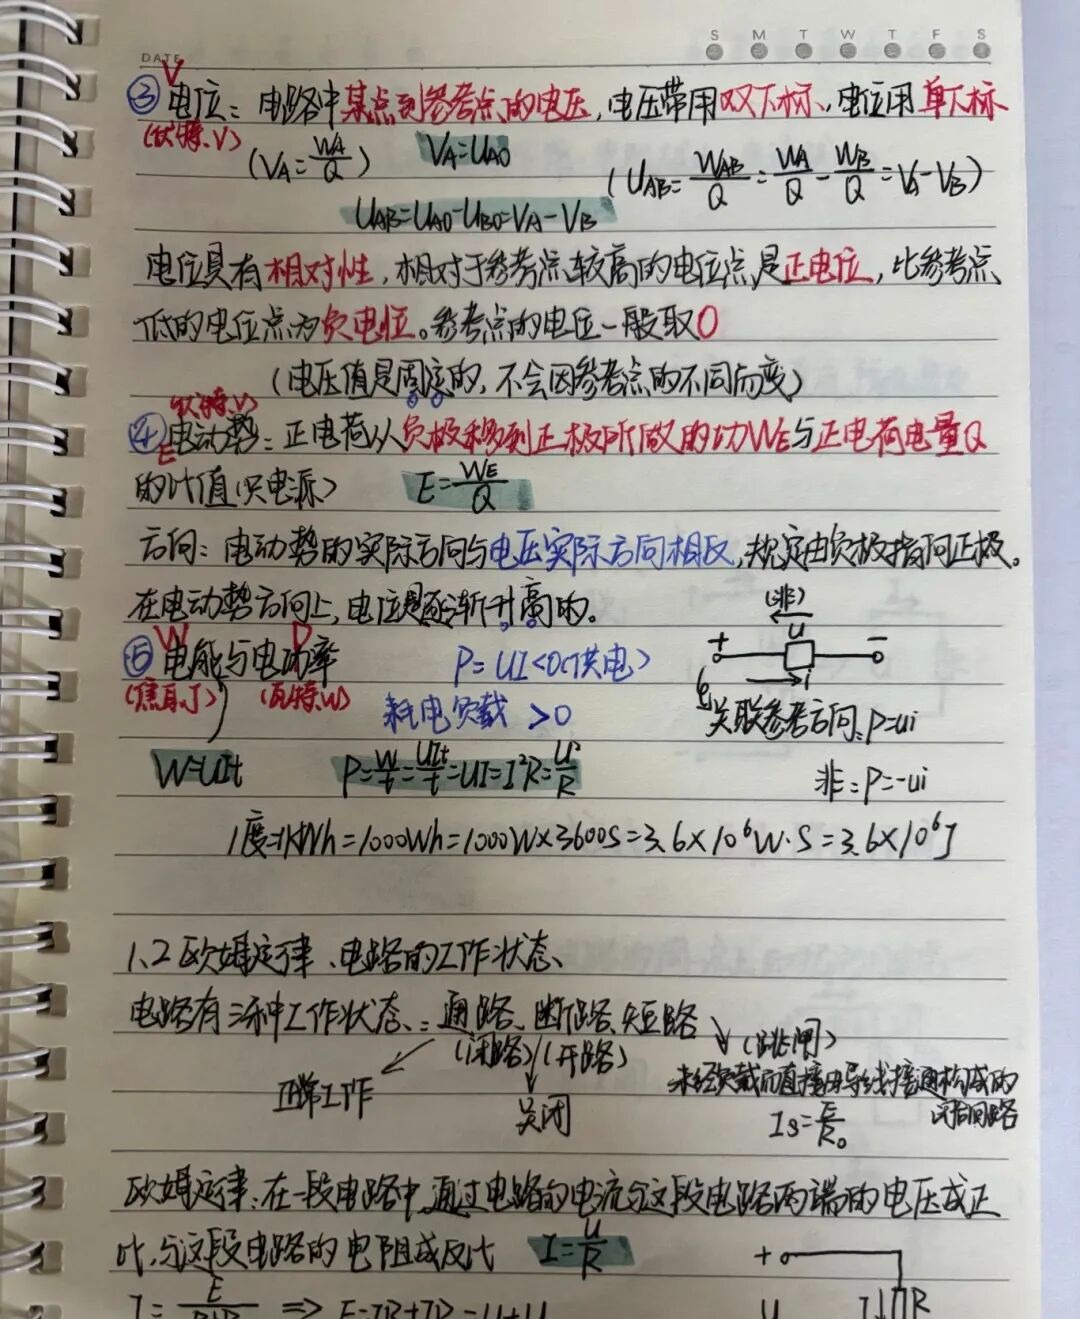 S M T W T F S
DATE
V
③ 电位：电路中某点到参考点的电压，电压带用双下标、电位用单下标
(伏特、V)
(VA=WA/Q) VA=UAO (UAB=WAB/Q=WA/Q-WB/Q=VA-VB)
UAB=UAO-UBO=VA-VB
电位具有相对性，相对于参考点较高的电位点是正电位，比参考点
低的电位点为负电位。参考点的电位一般取0
(电压值是固定的，不会因参考点的不同而变)
(伏特、V)
④ 电动势：正电荷从负极移到正极所做的功WE与正电荷电量Q
E
的比值(只电源) E=WE/Q
方向：电动势的实际方向与电压实际方向相反，规定由负极指向正极。
在电动势方向上，电位是逐渐升高的。
(非)
u
+ -
W P
⑤ 电能与电功率 P=UI<0(供电)
i
(焦耳、J) (瓦特、W) 耗电负载 >0
关联参考方向：P=ui
W=UIt P=W/t=UIt/t=UI=I²R=U²/R 非：P=-ui
1度=1kWh=1000Wh=1000W×3600S=3.6×10⁶W·S=3.6×10⁶J
1、2 欧姆定律、电路的工作状态、
电路有三种工作状态、：通路、断路、短路
(闭路) (开路) (跳闸)
正常工作 关闭 未经负载而直接由导线接通构成的
闭合回路
Is=E/R₀
欧姆定律：在一段电路中，通过电路的电流与这段电路两端的电压成正
比，与这段电路的电阻成反比 I=U/R
+
I=E/
U I R